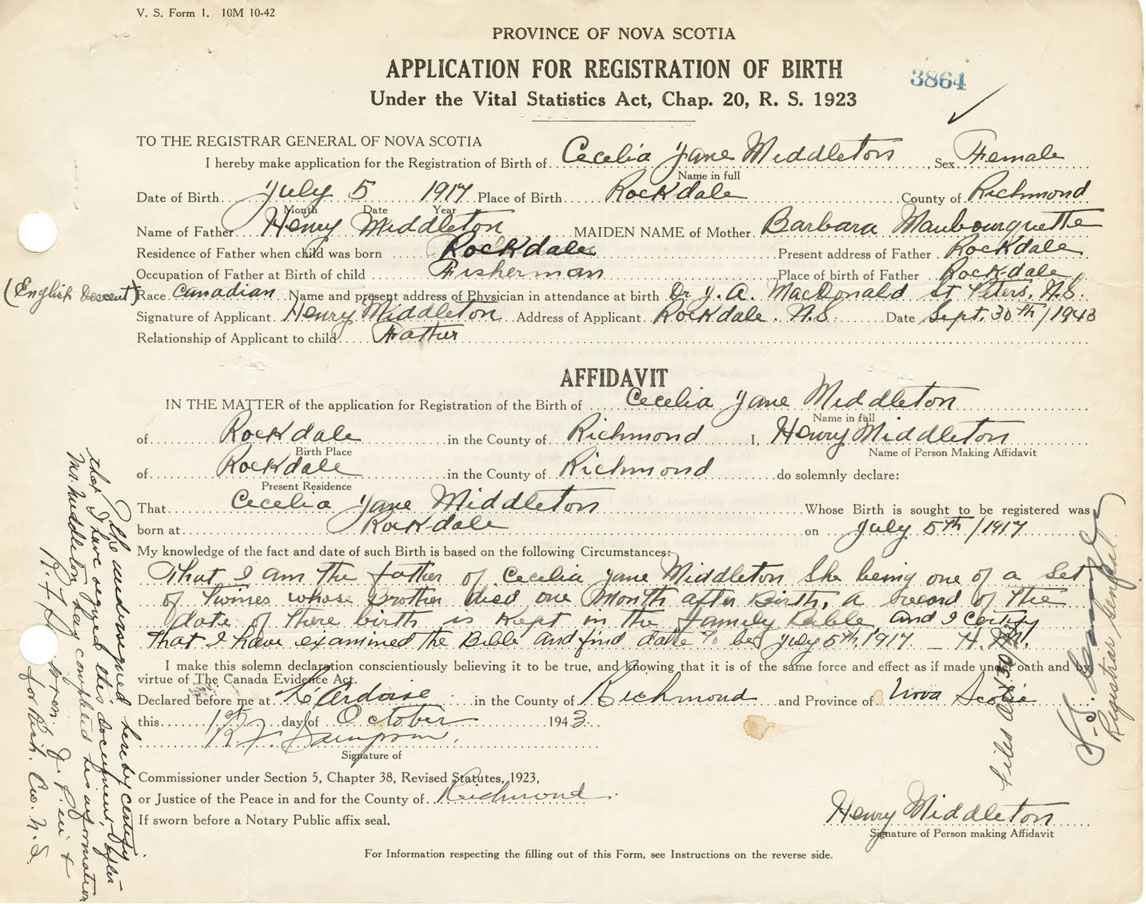 V. S. Form 1. 10M 10-42
PROVINCE OF NOVA SCOTIA
APPLICATION FOR REGISTRATION OF BIRTH
3864
Under the Vital Statistics Act, Chap. 20, R. S. 1923
TO THE REGISTRAR GENERAL OF NOVA SCOTIA
I hereby make application for the Registration of Birth of Cecelia Jane Middleton, Sex Female
Name in full
Date of Birth July 5 1917 Place of Birth Rockdale County of Richmond
Month Date Year
Name of Father Henry Middleton MAIDEN NAME of Mother Barbara Maubourquette
Residence of Father when child was born Rockdale Present address of Father Rockdale
Occupation of Father at Birth of child Fisherman Place of birth of Father Rockdale
(English Descent) Race Canadian Name and present address of Physician in attendance at birth Dr J. A. MacDonald St Peters, N.S.
Signature of Applicant Henry Middleton Address of Applicant Rockdale. N.S. Date Sept. 30th/1943
Relationship of Applicant to child Father
AFFIDAVIT
IN THE MATTER of the application for Registration of the Birth of Cecelia Jane Middleton
Name in full
of Rockdale in the County of Richmond I, Henry Middleton
Birth Place Name of Person Making Affidavit
of Rockdale in the County of Richmond do solemnly declare:
Present Residence
That Cecelia Jane Middleton Whose Birth is sought to be registered was
born at Rockdale on July 5th/1917
My knowledge of the fact and date of such Birth is based on the following Circumstances:
That I am the father of Cecelia Jane Middleton She being one of a Set
of twines whose Brother died one Month after Birth, a record of the
date of there birth is Kept in the family Bible, and I certify
that I have examined the Bible and find date to be July 5th, 1917 — H. M.
I make this solemn declaration conscientiously believing it to be true, and knowing that it is of the same force and effect as if made under oath and by
virtue of The Canada Evidence Act.
Declared before me at L'Ardoise in the County of Richmond and Province of Nova Scotia
this 1st day of October 1943.
R. F. Sampson.
Signature of
Commissioner under Section 5, Chapter 38, Revised Statutes, 1923,
or Justice of the Peace in and for the County of Richmond.
If sworn before a Notary Public affix seal.
Henry Middleton
Signature of Person making Affidavit
For Information respecting the filling out of this Form, see Instructions on the reverse side.
I the undersigned hereby certify
that I have signed this document, after
Mr. Middleton has completed his information
J. P. in &
for Rich. Co. N.S.
Registrar General